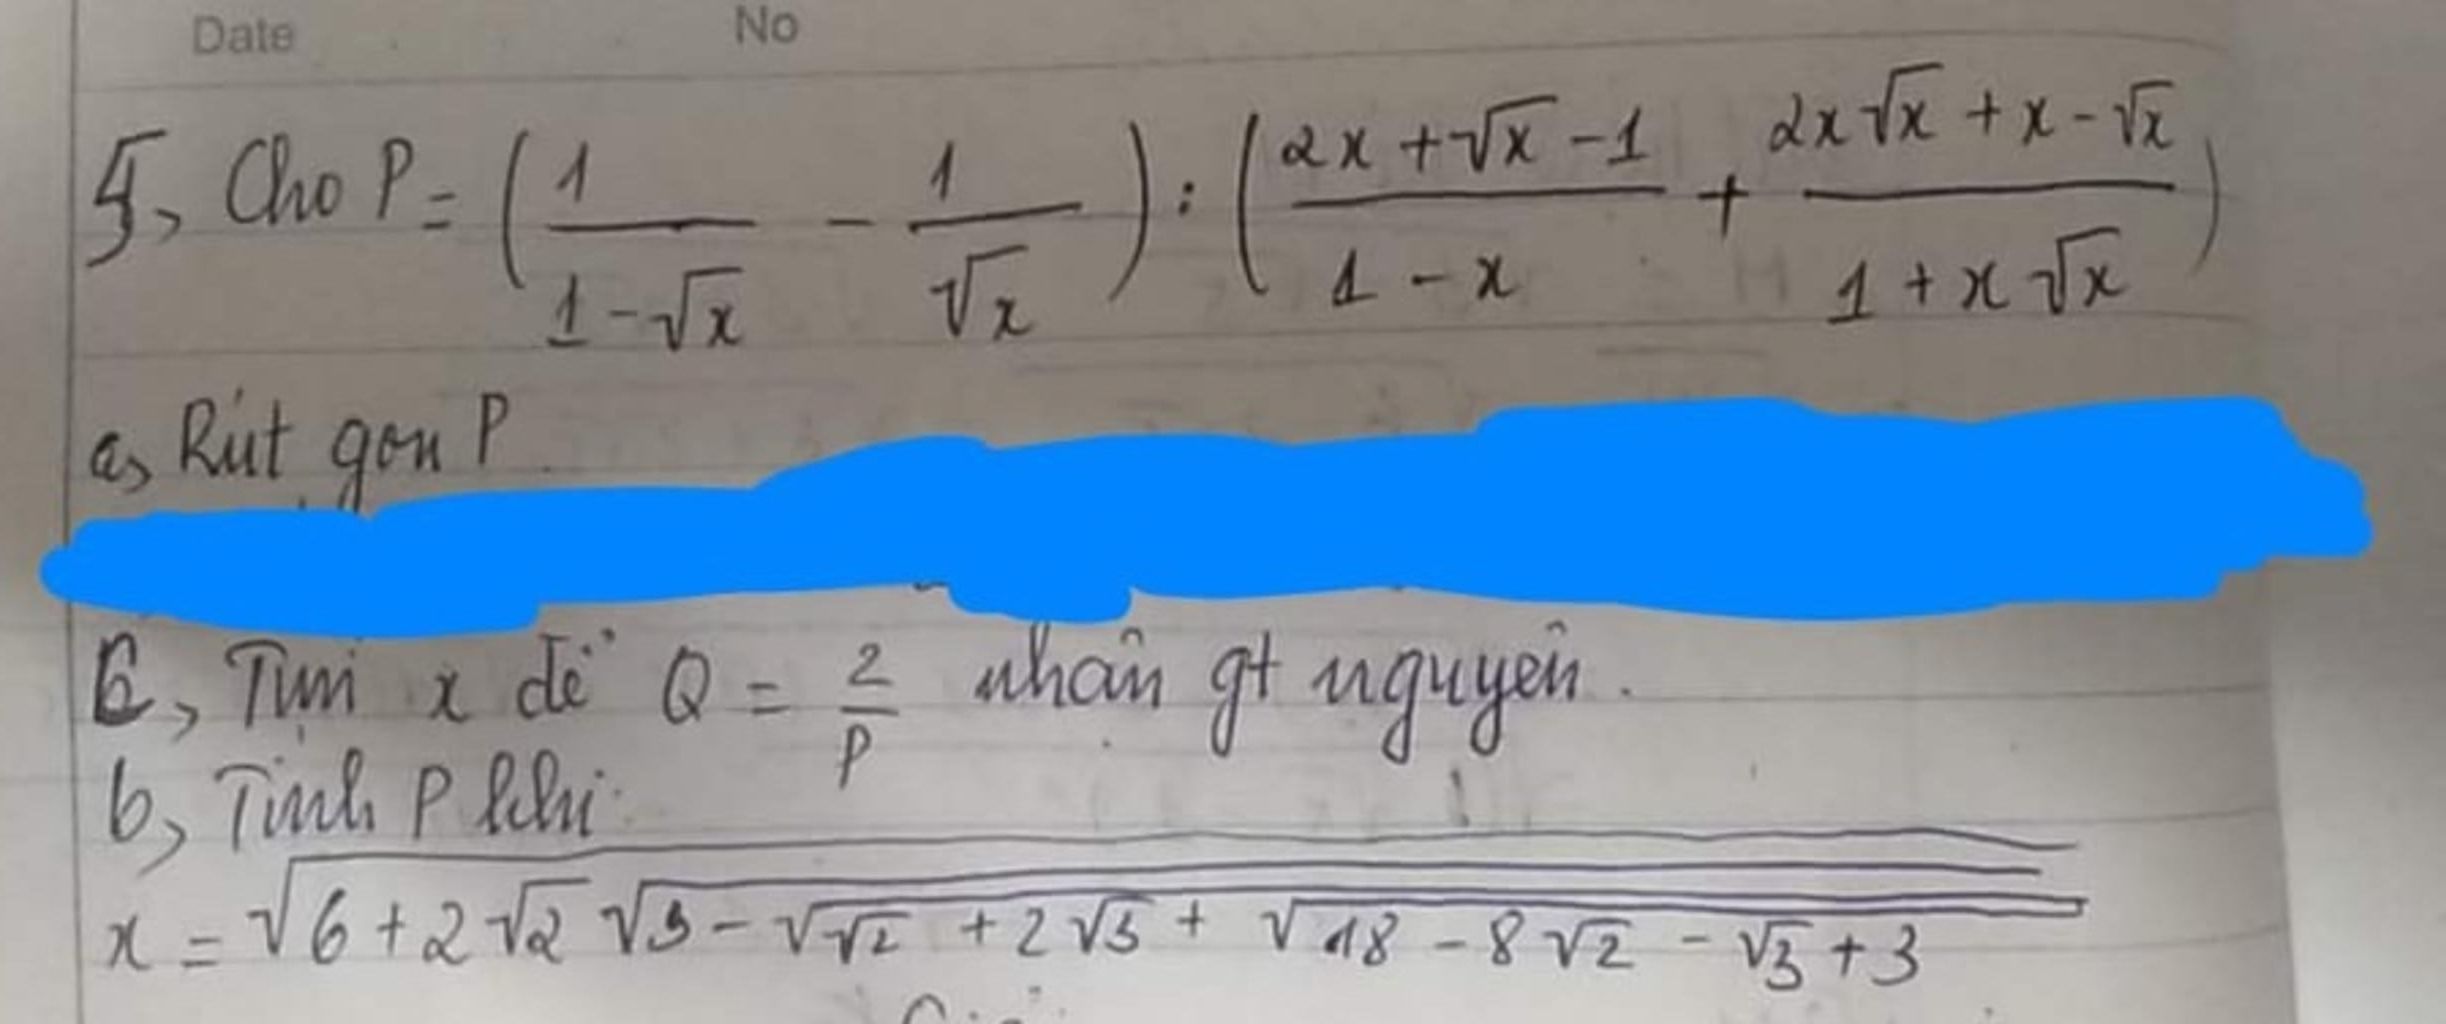 Date No
5, Cho P = (1/(1-√x) - 1/√x) : ((2x+√x-1)/(1-x) + (2x√x+x-√x)/(1+x√x))
a, Rút gọn P
c, Tìm x để Q = 2/P nhân gt nguyên.
b, Tính P khi
x = √(6+2√2√(3-√(√2+2√3+√(18-8√2-√3+3))))